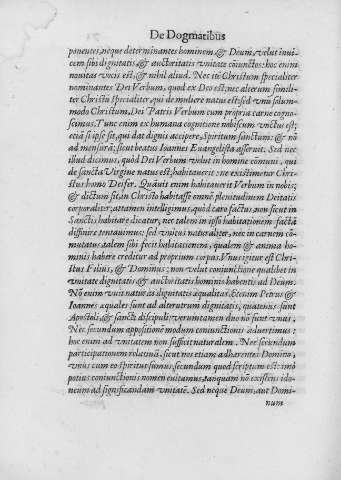 De Dogmatibus
ponentes, neque determinantes hominem, & Deum, velut inui-
cem sibi dignitatis, & auctoritatis vnitate cōiunctos: hoc enim
nouitas vocis est, & nihil aliud. Nec itē Christum specialiter
nominantes Dei Verbum, quod ex Deo est; nec alterum simili-
ter Christū specialiter, qui de muliere natus est: sed vnū solum-
modo Christum, Dei Patris Verbum cum propria carne cogno-
scimus. Tunc enim ex humana cognitione nobiscum vnctus est;
etiā si ipse sit, qui dat dignis accipere, Spiritum sanctum: & nō
ad mensurā; sicut beatus Ioannes Euangelista asseruit. Sed nec
illud dicimus, quòd Dei Verbum velut in homine cōmuni, qui
de sancta Virgine natus est, habitauerit: ne existimetur Chri-
stus homo Deifer. Quāuis enim habitauerit Verbum in nobis;
& dictum sit, in Christo habitasse omnē plenitudinem Deitatis
corporaliter: attamen intelligimus, quòd caro factus, non sicut in
Sanctis habitare dicatur, nec talem in ipso habitationem factā
diffinire tentauimus: sed vnitus naturaliter, nec in carnem cō-
mutatus, talem sibi fecit habitationem, qualem & anima ho-
minis habere creditur ad proprium corpus. Vnus igitur est Chri-
stus Filius, & Dominus: non velut coniunctione qualibet in
vnitate dignitatis & auctoritatis hominis habentis ad Deum.
Nō enim vnit naturas dignitatis æqualitas. Etenim Petrus &
Ioannes æquales sunt ad alterutrum dignitatis, quatenus sunt
Apostoli, & sancti discipuli: verumtamen duo nō sunt vnus,
Nec secundum appositionē modum coniunctionis aduertimus:
hoc enim ad vnitatem non sufficit naturalem. Nec secundum
participationem relatiuā, sicut nos etiam adhærentes Domino,
vnus cum eo spiritus sumus, secundum quod scriptum est: imò
potius coniunctionis nomen euitamus, tanquam nō existens ido-
neum ad significandam vnitatē. Sed neque Deum, aut Domi-
num